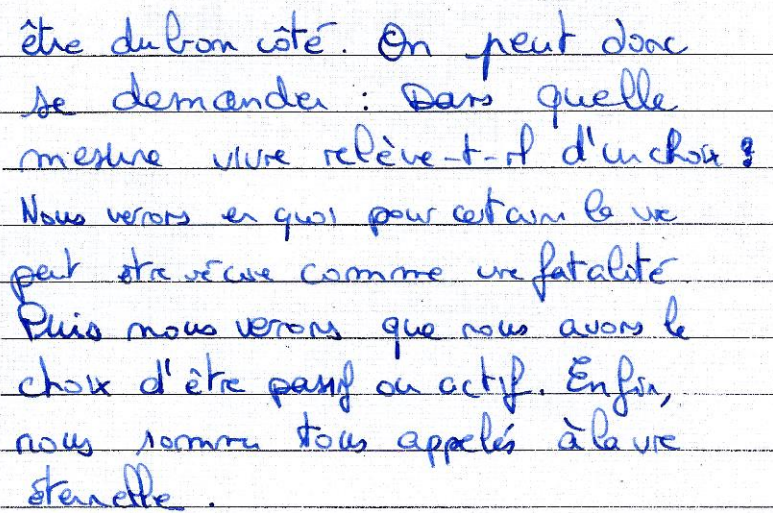 être du bon côté. On peut donc
se demander : Dans quelle
mesure vivre relève-t-il d'un choix ?
Nous verrons en quoi pour certain la vie
peut être vécue comme une fatalité.
Puis nous verrons que nous avons le
choix d'être passif ou actif. Enfin,
nous sommes tous appelés à la vie
éternelle.